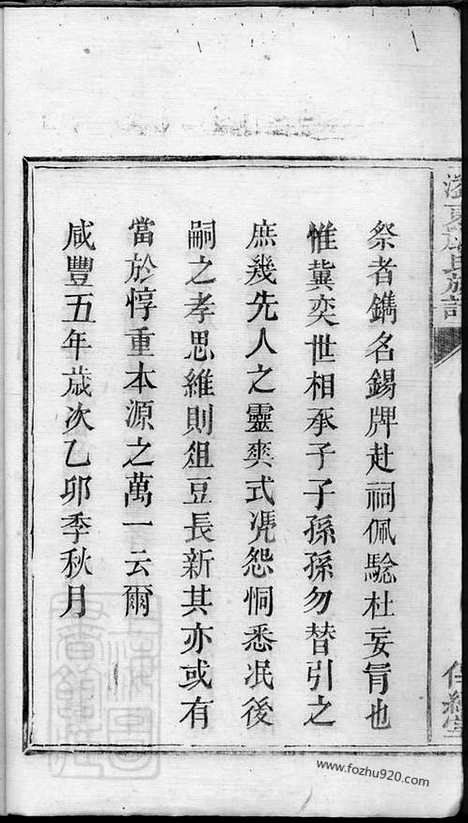 祭者鐫名錫牌赴祠佩驗杜妄冐也
惟冀奕世相承子子孫孫勿替引之
庶幾先人之靈爽式慿怨恫悉泯後
嗣之孝思維則俎豆長新其亦或有
當於惇重本源之萬一云爾
咸豐五年歲次乙卯季秋月
www.fozhu920.com